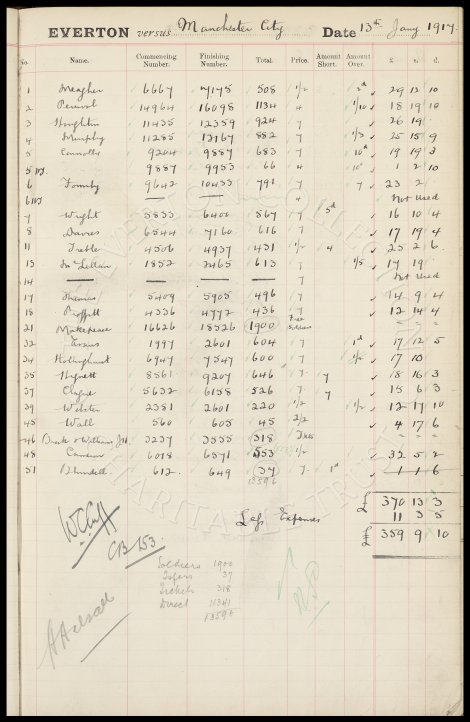 EVERTON versus Manchester City Date 13th Jany 1917.
No. Name. Commencing Number. Finishing Number. Total. Price. Amount Short. Amount Over. £ s. d.
1 Meagher 6667 7175 508 1/2 2d 29 12 10
2 Percival 14964 16098 1134 4 1/10 18 19 10
3 Houghton 11435 12359 924 7 26 19
4 Murphy 11285 12167 882 7 1/3 25 15 9
5 Connolly 9204 9887 683 7 10d 19 19 3
5 9887 9953 66 4 10d 1 2 10
6 Formby 9642 10433 791 7 7 23 2
6 4 Not used
7 Wright 5833 6400 567 7 5d 16 10 4
8 Davies 6544 7160 616 7 17 19 4
11 Treble 4506 4937 431 1/2 4 25 2 6
13 McLellan 1852 2465 613 7 1/5 17 19
14 7 Not used
17 Thomas 5409 5905 496 7 14 9 4
18 Proffitt 4336 4772 436 7 12 14 4
21 Makepeace 16626 18526 1900 Free
32 Evans 1997 2601 604 7 1d 17 12 5
34 Hollinghurst 6947 7547 600 7 1/2 17 10
35 Hignett 8561 9207 646 7 7 18 16 3
37 Clague 5632 6158 526 7 7 15 6 3
39 Webster 2381 2601 220 1/2 1/2 12 17 10
45 Wall 560 605 45 2/2 4 17 6
46 3237 3555 318
48 Cameron 6018 6571 553 1/2 32 5 2
51 Blundell 612 649 37 7 1d 1 1 6
13596
£ 370 13 3
Less Expenses 11 3 5
£ 359 9 10
CB 153.
Soldiers 1900
37
Tickets 318
Direct 11341
13596